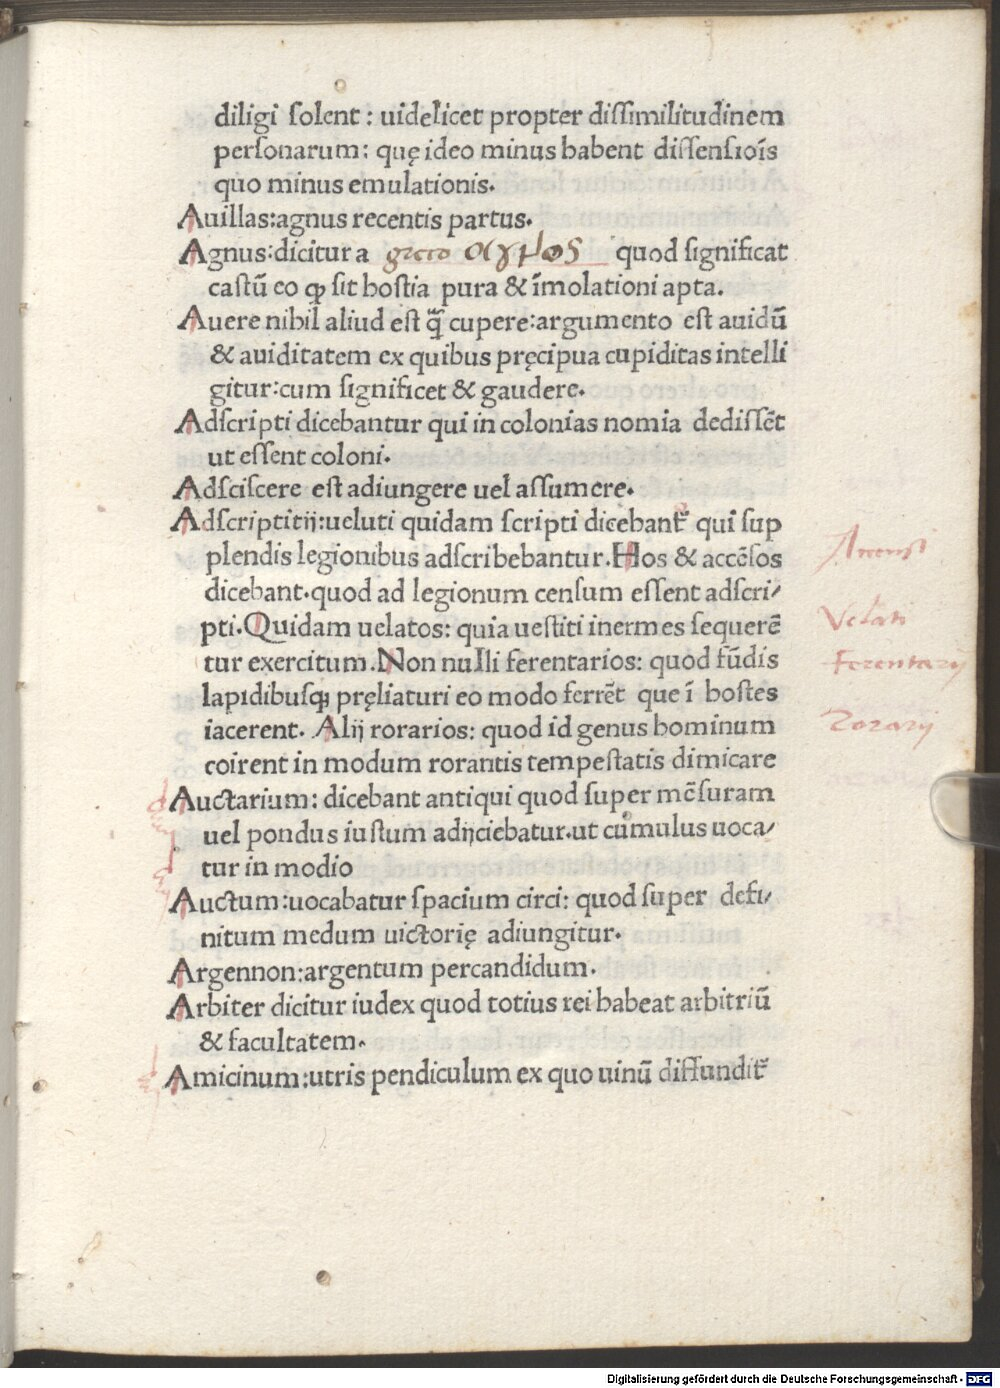 diligi solent : uidelicet propter dissimilitudinem
personarum: quę ideo minus habent dissensiōis
quo minus emulationis.
Auillas:agnus recentis partus.
Agnus:dicitur a greco αγνος quod significat
castū eo ꝙ sit hostia pura & īmolationi apta.
Auere nihil aliud est q̄ cupere:argumento est auidū
& auiditatem ex quibus pręcipua cupiditas intelli
gitur:cum significet & gaudere.
Adscripti dicebantur qui in colonias nomia dedissēt
ut essent coloni.
Adsciscere est adiungere uel assumere.
Adscriptitij:ueluti quidam scripti dicebant᷑ qui sup
plendis legionibus adscribebantur. Hos & accēsos
dicebant.quod ad legionum censum essent adscri/
pti. Quidam uelatos: quia uestiti inermes sequerē
tur exercitum. Non nulli ferentarios: quod fūdis
lapidibusqꝫ pręliaturi eo modo ferrēt que ī hostes
iacerent. Alij rorarios: quod id genus hominum
coirent in modum rorantis tempestatis dimicare
Auctarium: dicebant antiqui quod super mēsuram
uel pondus iustum adijciebatur.ut cumulus uoca/
tur in modio
Auctum:uocabatur spacium circi: quod super defi/
nitum medum uictorię adiungitur.
Argennon:argentum percandidum.
Arbiter dicitur iudex quod totius rei habeat arbitriū
& facultatem.
Amicinum:utris pendiculum ex quo uinū diffundit᷑
Accensi
Velati
Ferentarij
Rorarij
Digitalisierung gefördert durch die Deutsche Forschungsgemeinschaft - DFG